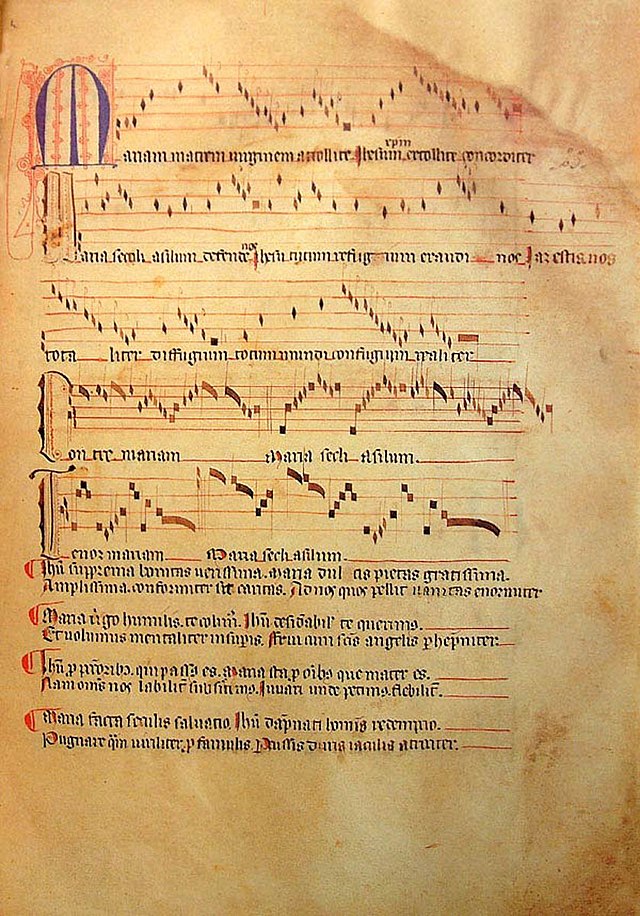 Mariam matrem virginem attollite. Jhesum xpm extollite concorditer
Maria secli asilum defende nos Jhesu tutum refugium exaudi nos Jam estis nos
tota liter diffugium totum mundi confugium realiter
Contre mariam Maria secli asilum.
Tenor mariam Maria secli asilum.
Jhu suprema bonitas verissima. Maria dulcis pietas gratissima.
Amplissima. conformiter sit caritas. Ad nos quos pellit vanitas enormiter
Maria virgo humilis. te colimus. Jhu desiderabilis te querimus.
Et volumus mentaliter in supis. Frui cum scis angelis perhenniter
Jhu pro peccatoribus. qui passus es. Maria sta pro omnibus que mater es.
Nam omnes nos labiliter subsistimus. Juvari unde petimus. flebiliter.
Maria facta seculis salvatio. Jhu dampnati hominis redemptio.
Pugnare quem viriliter. pro famulis. Percussis duris iaculis atrociter.